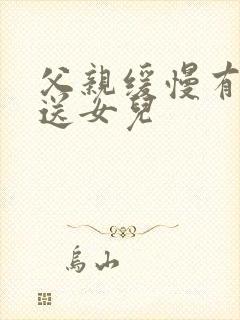 父親缓慢有
送女兒
烏山